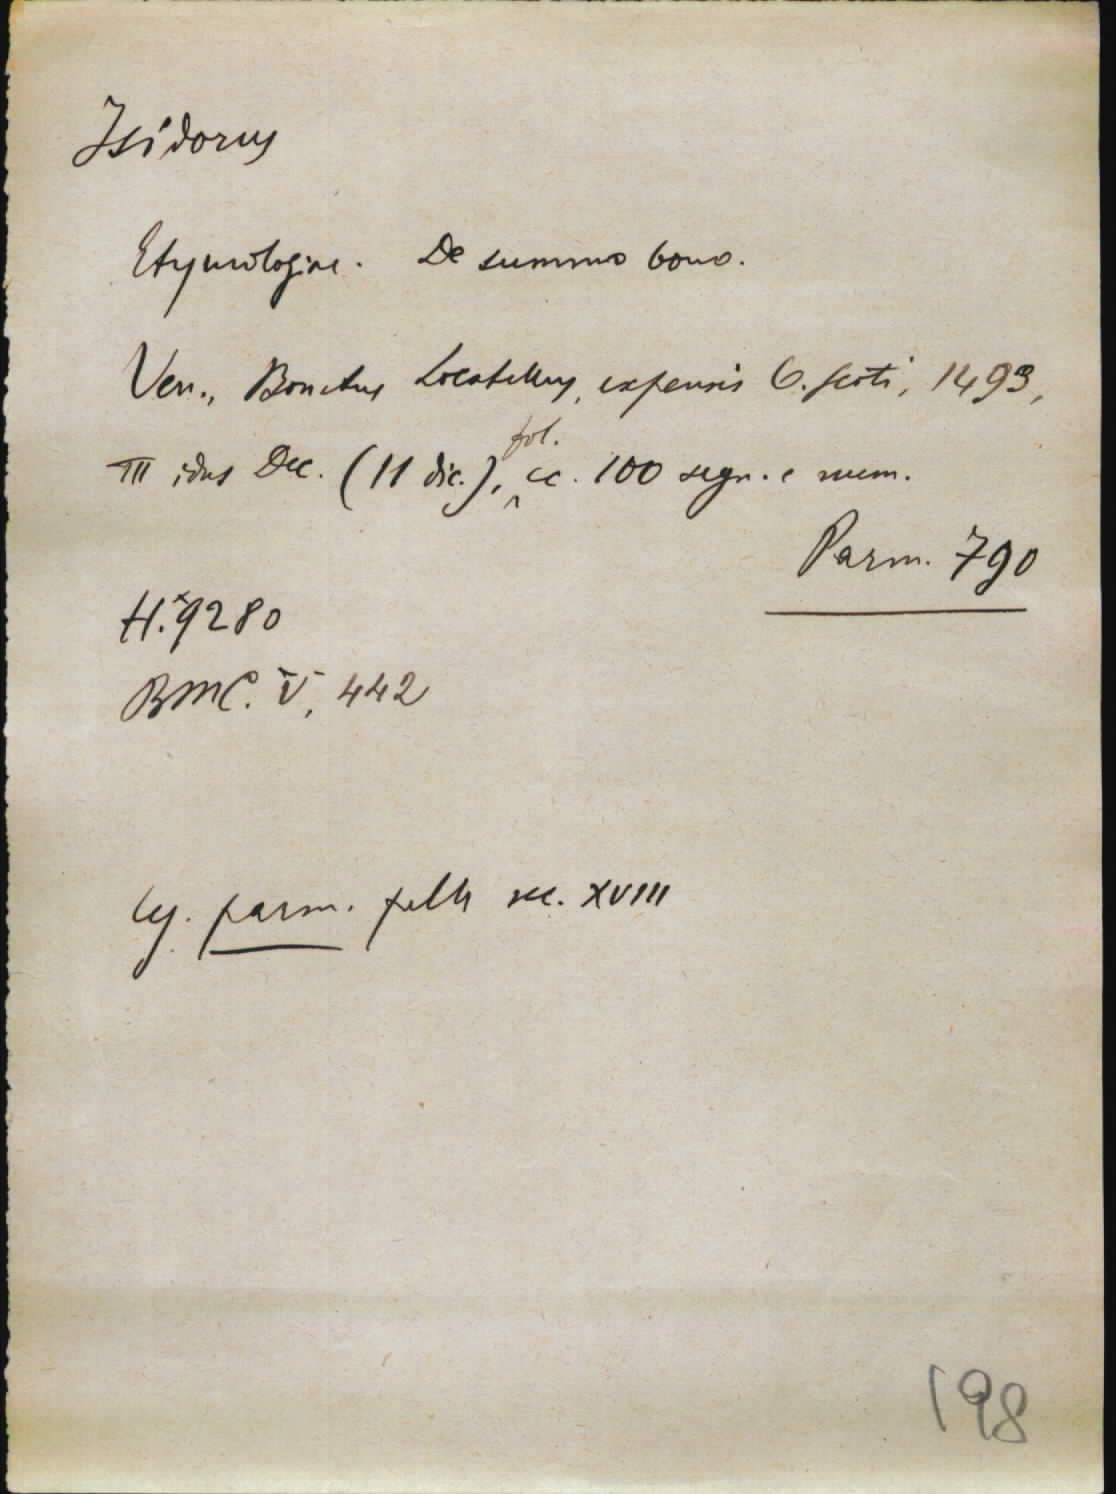 Isidorus
Etymologiae. De summo bono.
Ven., Bonetus Locatellus, expensis O. Scoti, 1493,
III idus Dec. (11 dic.), fol. cc. 100 segn. e num.
Parm. 790
H.*9280
BMC. V, 442
Leg. parm. pelle sec. XVIII
198